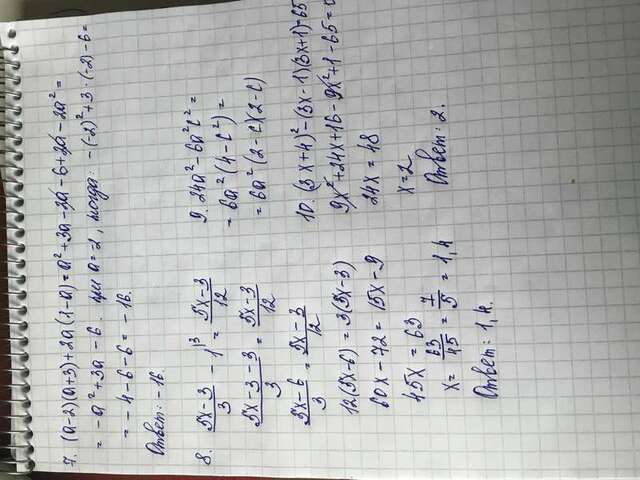 7. (a-2)(a+3)+2a(1-a)=a²+3a-2a-6+2a-2a²=
= -a²+3a-6. при a=-2, тогда: -(-2)²+3·(-2)-6=
= -4-6-6= -16.
Ответ: -16.
8. (5x-3)/3 - 1^{|3} = (5x-3)/12
(5x-3-3)/3 = (5x-3)/12
(5x-6)/3 = (5x-3)/12
12(5x-6)=3(5x-3)
60x-72=15x-9
45x=63
x= 63/45 = 7/5 = 1,4
Ответ: 1,4.
9. 24a²-6a²c²=
= 6a²(4-c²)=
= 6a²(2-c)(2-c)
10. (3x+4)²-(3x-1)(3x+1)=65
9x²+24x+16-9x²+1-65=0
24x=48
x=2
Ответ: 2.